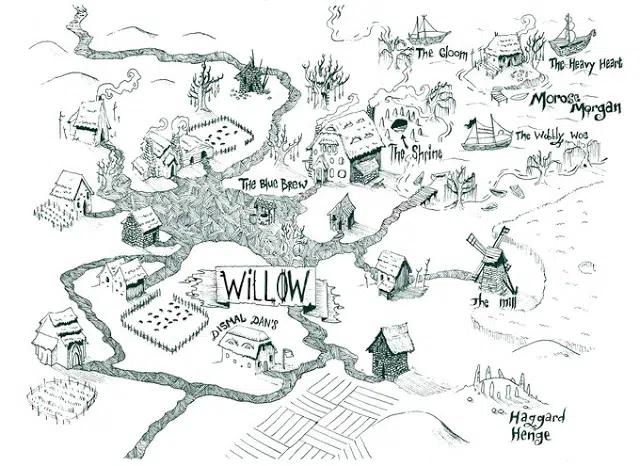 The Gloom
The Heavy Heart
Morose
Morgan
The Wobbly Woe
The Shrine
The Blue Brew
WiLLOW
The Mill
DISMAL DAN'S
Haggard
Henge